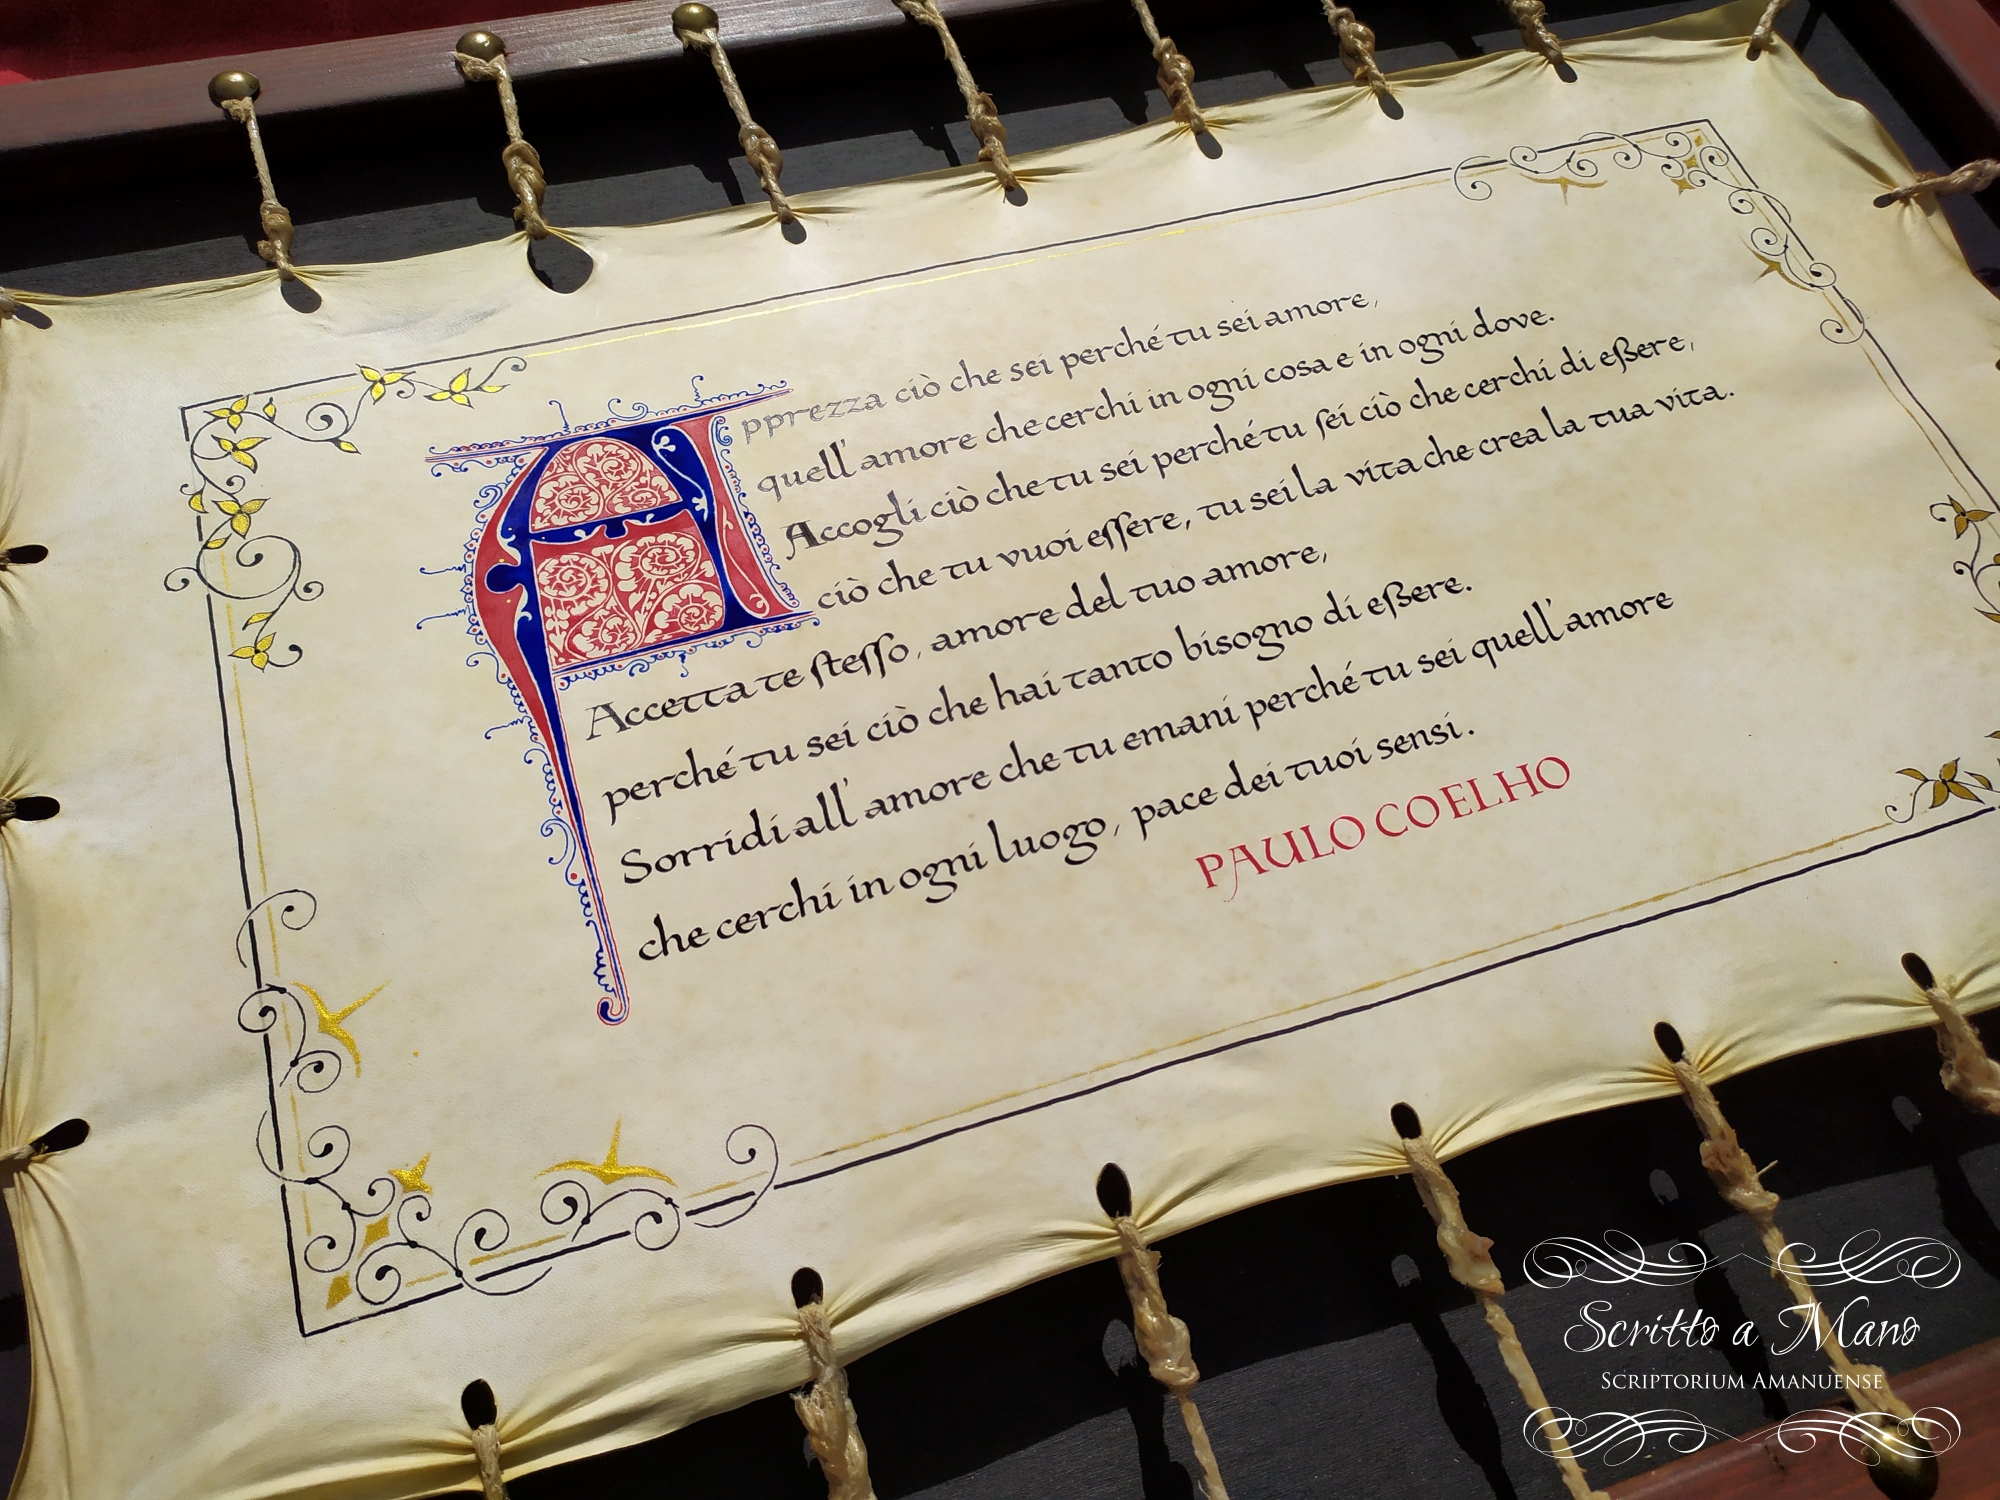 Apprezza ciò che sei perché tu sei amore,
quell'amore che cerchi in ogni cosa e in ogni dove.
Accogli ciò che tu sei perché tu ſei ciò che cerchi di eßere,
ciò che tu vuoi eſſere, tu sei la vita che crea la tua vita.
Accetta te ſteſſo, amore del tuo amore,
perché tu sei ciò che hai tanto bisogno di eßere.
Sorridi all'amore che tu emani perché tu sei quell'amore
che cerchi in ogni luogo, pace dei tuoi sensi.
PAULO COELHO
Scritto a Mano
SCRIPTORIUM AMANUENSE